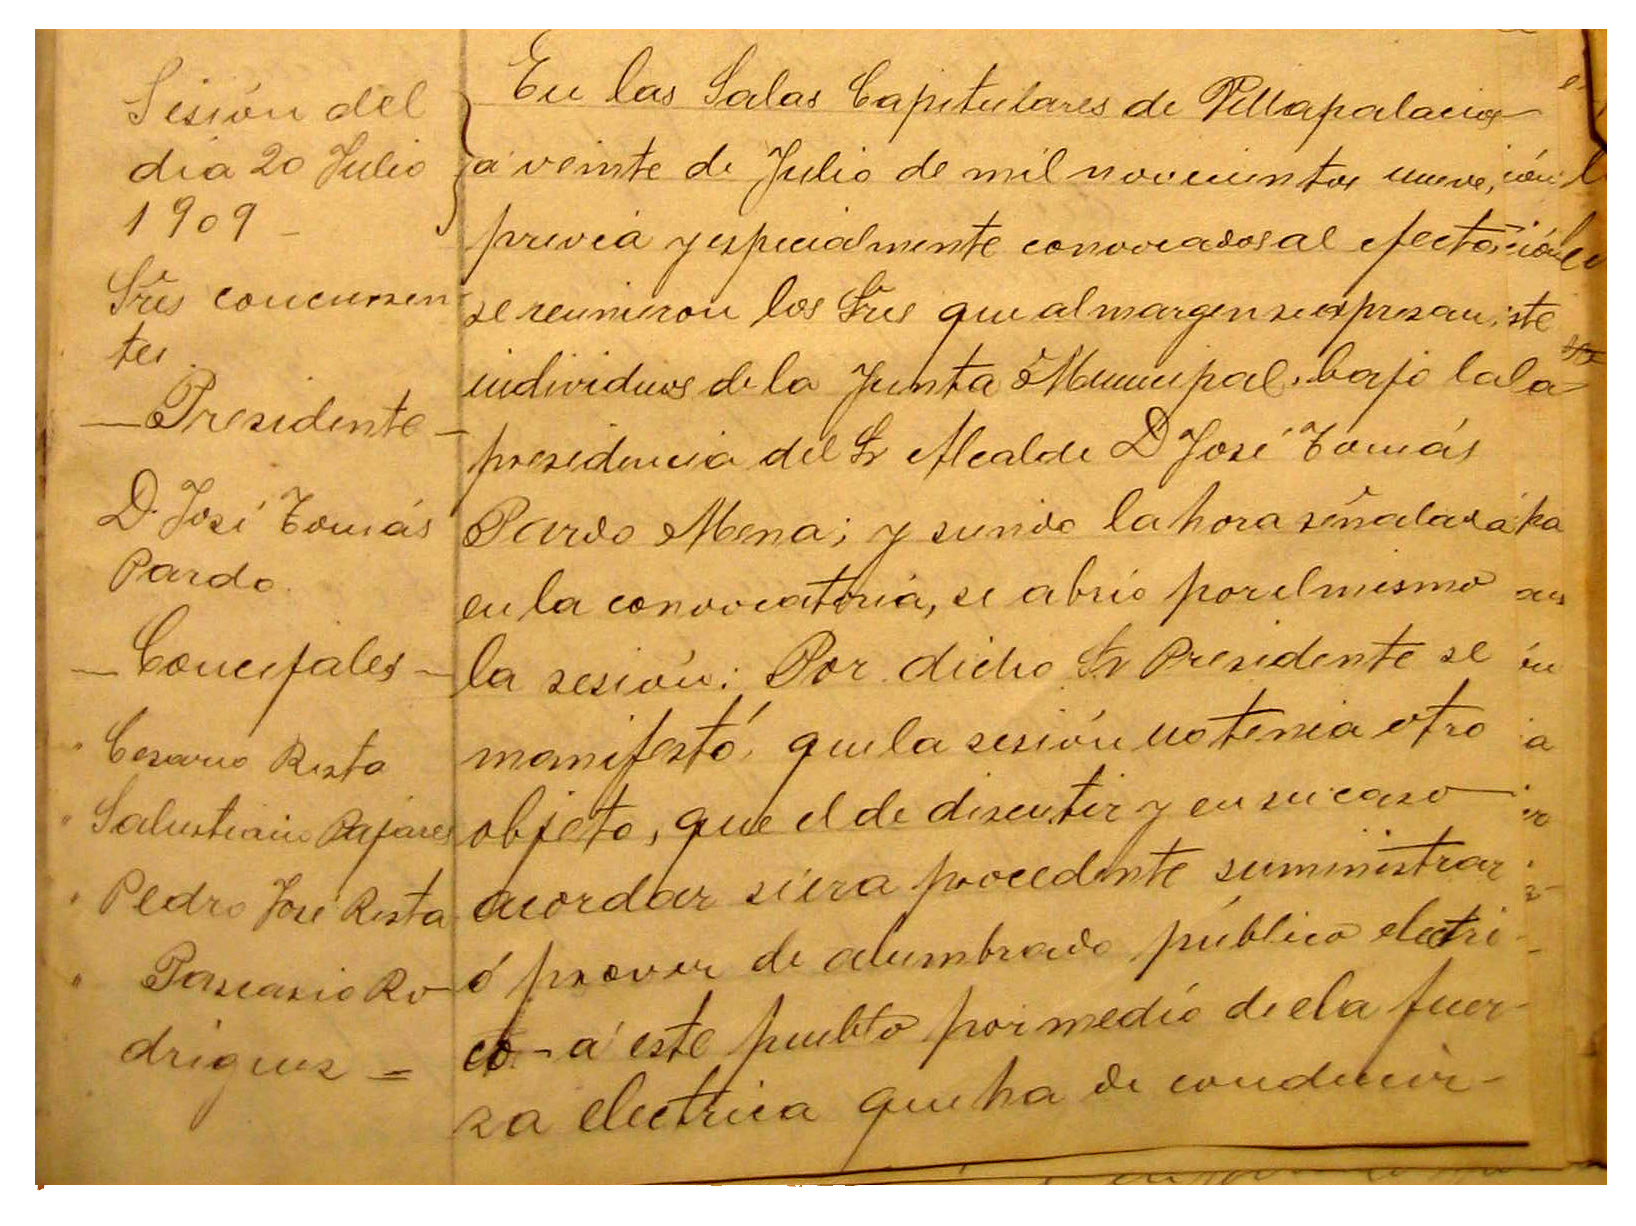 Sesión del
dia 20 Julio
1909 -
Sres concurren
tes
- Presidente -
D. José Tomás
Pardo.
- Concejales -
" Cesareo Resta
" Salustiano Pajares
" Pedro José Resta
" Pascasio Ro-
drigues =
En las Salas Capitulares de Villapalacios
á veinte de Julio de mil novecientos nueve,
previa y especialmente convocados al efecto,
se reunieron los Sres que al margen se expresan,
individuos de la Junta Municipal, bajo la
presidencia del Sr Alcalde D José Tomás
Pardo Mena; y siendo la hora señalada
en la convocatoria, se abrió por el mismo
la sesión: Por dicho Sr Presidente se
manifestó, que la sesión no tenia otro
objeto, que el de discutir y en su caso
acordar si era procedente suministrar
ó prover de alumbrado público electri-
co - á este pueblo por medio de la fuer-
za electrica que ha de conducir-